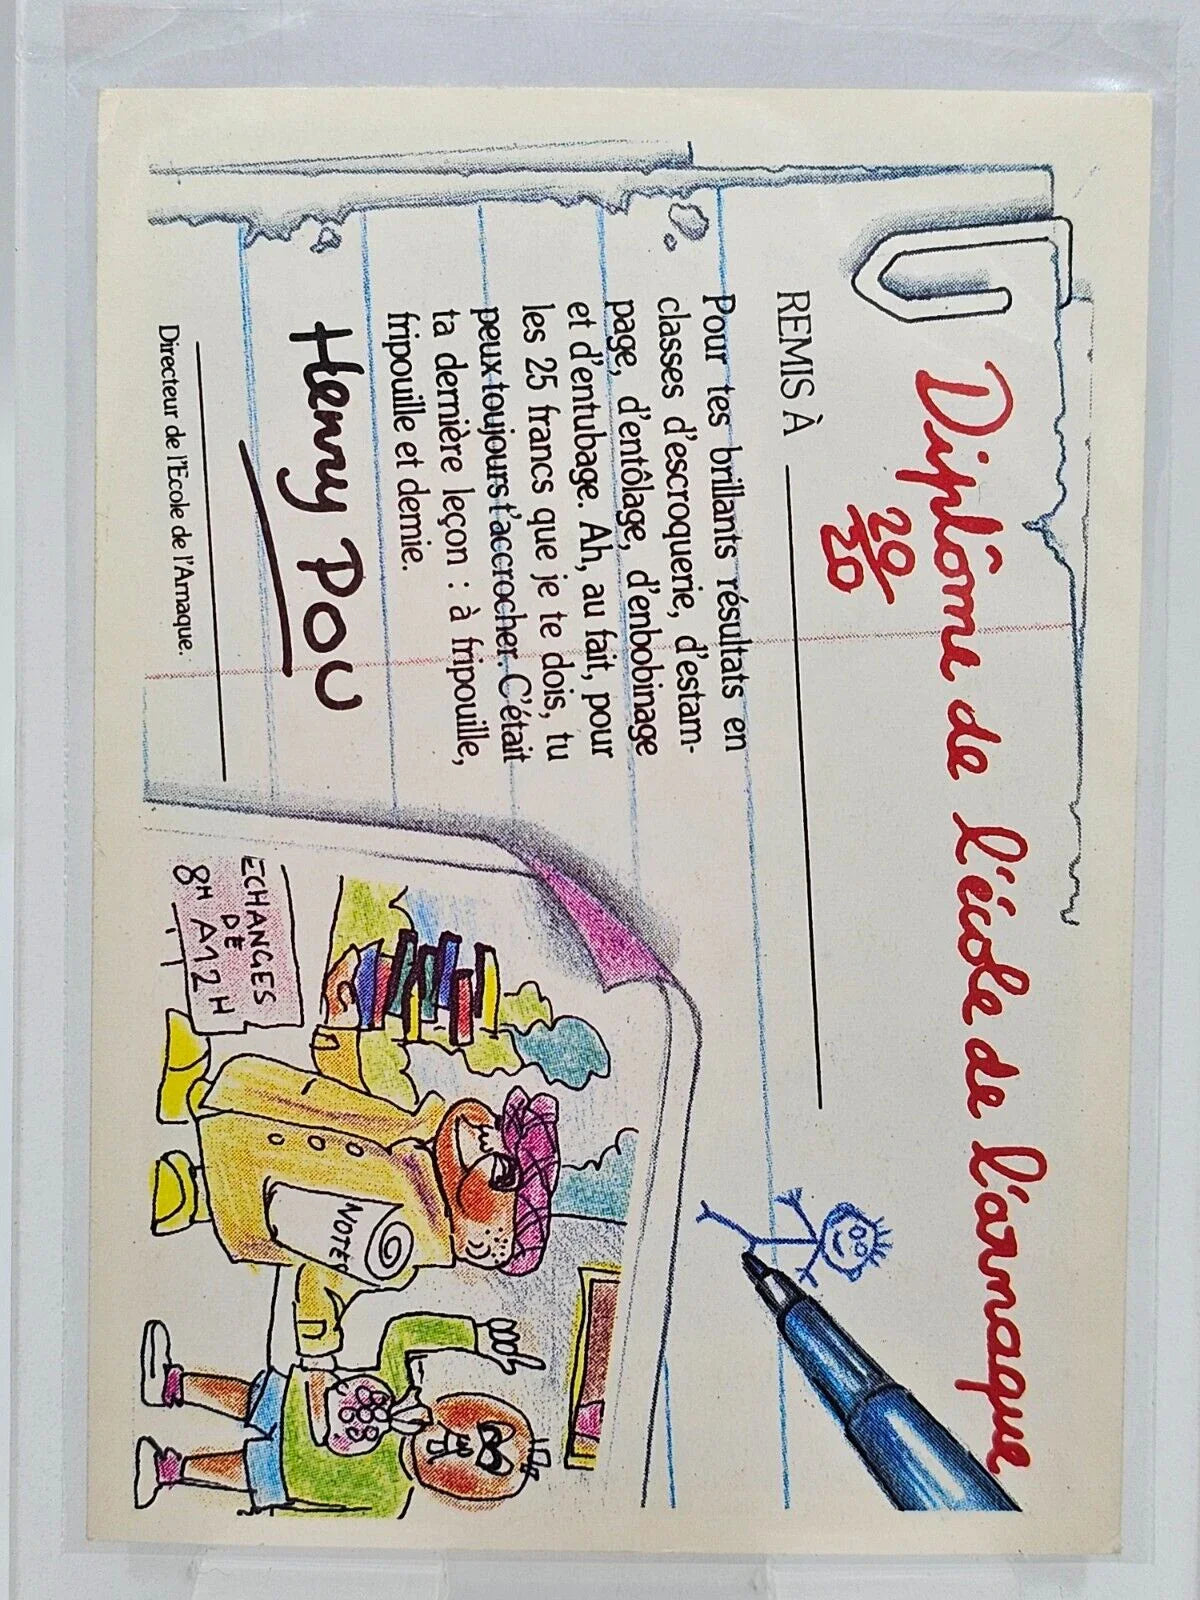 Diplôme de l'école de l'arnaque
20
20
REMIS À
Pour tes brillants résultats en
classes d'escroquerie, d'estam-
page, d'entôlage, d'embobinage
et d'entubage. Ah, au fait, pour
les 25 francs que je te dois, tu
peux toujours t'accrocher. C'était
ta dernière leçon : à fripouille,
fripouille et demie.
Henry POU
Directeur de l'Ecole de l'Arnaque.
ECHANGES
DE
8H A 12H
NOTES